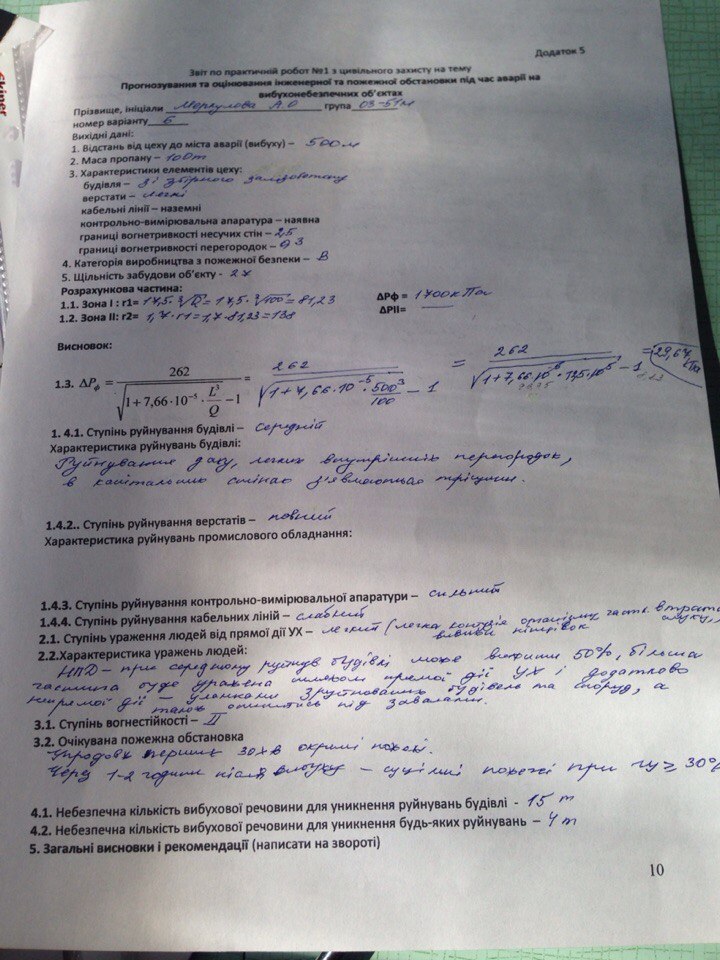 Додаток 5
Звіт по практичній робот №1 з цивільного захисту на тему
Прогнозування та оцінювання інженерної та пожежної обстановки під час аварії на
вибухонебезпечних об'єктах
Прізвище, ініціали Меркулова А О група 03-51м
номер варіанту 6
Вихідні дані:
1. Відстань від цеху до міста аварії (вибуху) – 500м
2. Маса пропану – 100т
3. Характеристики елементів цеху:
будівля – зі збірного залізобетону
верстати – легкі
кабельні лінії – наземні
контрольно-вимірювальна апаратура – наявна
границі вогнетривкості несучих стін – 2,5
границі вогнетривкості перегородок – 0,3
4. Категорія виробництва з пожежної безпеки – В
5. Щільність забудови об'єкту -
Розрахункова частина:
1.1. Зона I : r1= 17,5·∛Q = 17,5·∛100 = 81,23 ΔPф = 1700кПа
1.2. Зона II: r2= 1,7·r1=1,7·81,23=138 ΔPII= —
Висновок:
1.3. ΔPф = 262 / √(1+7,66·10⁻⁵·L³/Q − 1) = 262 / √(1+7,66·10⁻⁵·500³/100 − 1) = 262 / = 29,67 кПа
1. 4.1. Ступінь руйнування будівлі – середній
Характеристика руйнувань будівлі:
Руйнування даху, легких внутрішніх перегородок,
в капітальних стінах з'являються тріщини.
1.4.2.. Ступінь руйнування верстатів – повний
Характеристика руйнувань промислового обладнання:
1.4.3. Ступінь руйнування контрольно-вимірювальної апаратури – сильний
1.4.4. Ступінь руйнування кабельних ліній – слабкий
2.1. Ступінь ураження людей від прямої дії УХ – легкий (легка контузія організму, частк. втрата слуху,
2.2.Характеристика уражень людей:
НПД – при середньому руйнув будівлі може вижити 50%, більша
частина буде уражена шляхом прямої дії УХ і додатково
непрямої дії – уламками зруйнованих будівель та споруд, а
також опинитись під завалами.
3.1. Ступінь вогнестійкості – II
3.2. Очікувана пожежна обстановка
Упродовж перших 30хв окремі пожежі.
Через 1-2 години після вибуху – суцільні пожежі при ≥ 30%
4.1. Небезпечна кількість вибухової речовини для уникнення руйнувань будівлі - 15 т
4.2. Небезпечна кількість вибухової речовини для уникнення будь-яких руйнувань – 4 т
5. Загальні висновки і рекомендації (написати на звороті)
10